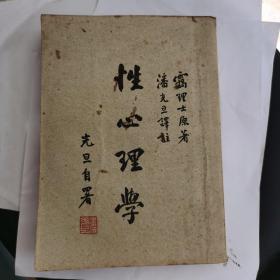 靄理士原著
潘光旦譯註
性心理學
光旦自署